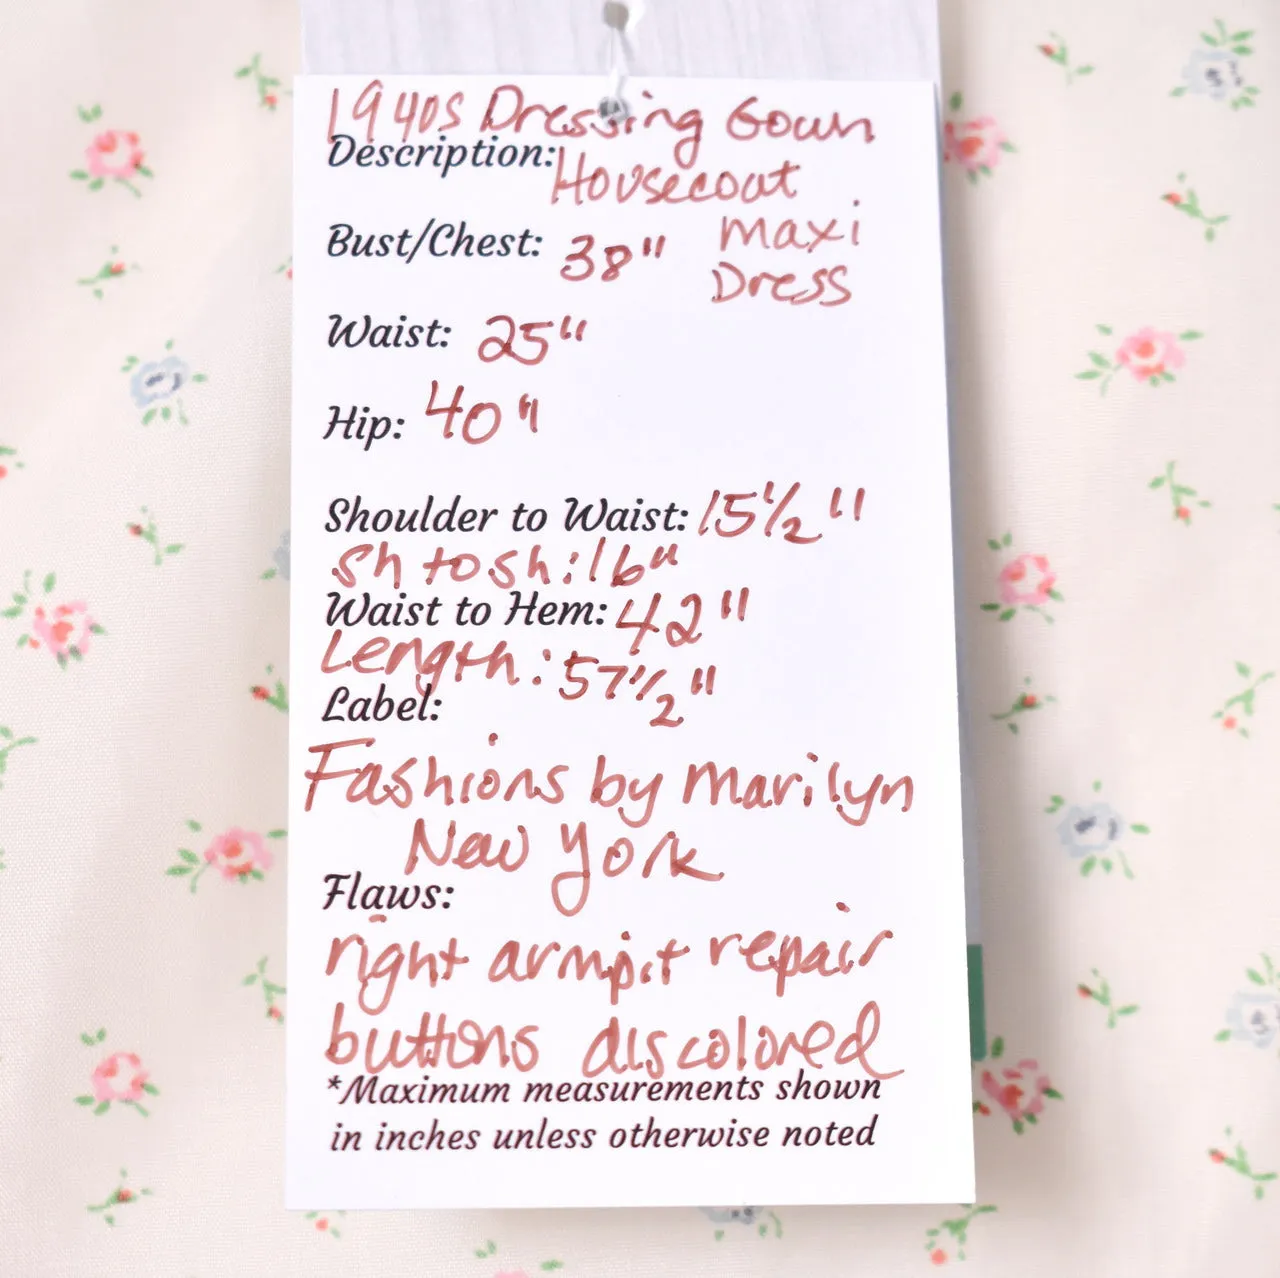 1940s Dressing Gown
Description: Housecoat
Maxi
Bust/Chest: 38"
Dress
Waist: 25"
Hip: 40"
Shoulder to Waist: 15 1/2"
Sh to sh: 16"
Waist to Hem: 42"
Length: 57 1/2"
Label:
Fashions by Marilyn
New York
Flaws:
right armpit repair
buttons discolored
*Maximum measurements shown
in inches unless otherwise noted